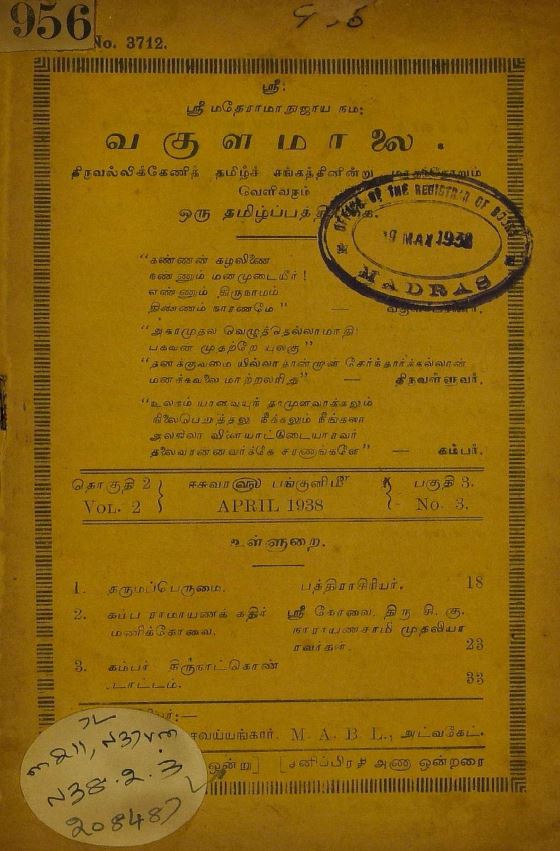 956
No. 3712.
ஸ்ரீ:
ஸ்ரீ மதேராமாநுஜாய நம:
வகுளமாலை.
திருவல்லிக்கேணித் தமிழ்ச் சங்கத்தினின்று
வெளிவரும்
ஒரு தமிழ்ப்பத்திரிகை.
OFFICE OF THE REGISTRAR OF BOOKS
9 MAY 1938
MADRAS
"கண்ணன் கழலிணை
நண்ணும் மனமுடையீர்!
எண்ணும் திருநாமம்
திண்ணம் நாரணமே" —
"அகரமுதல வெழுத்தெல்லாமாதி
பகவன் முதற்றே யுலகு"
"தனக்குவமை யில்லாதான்றாள் சேர்ந்தார்க்கல்லான்
மனக்கவலை மாற்றலரிது" — திருவள்ளுவர்.
"உலகம் யாவையுந் தாமுளவாக்கலும்
நிலைபெறுத்தலு நீக்கலும் நீங்கலா
அலகிலா விளையாட்டுடையாரவர்
தலைவரன்னவர்க்கே சரணாங்களே" — கம்பர்.
தொகுதி 2 ஈசுவரஹு பங்குனிமீ பகுதி 3.
VOL. 2 APRIL 1938 No. 3.
உள்ளுறை.
1. தருமப்பெருமை. பத்திராசிரியர். 18
2. கம்ப ராமாயணக் கதிர் ஸ்ரீ கோவை. திரு சி. கு.
மணிக்கோவை. நாராயணசாமி முதலியா
ரவர்கள். 23
3. கம்பர் திருநாட்கொண் 33
டாட்டம்.
M. A. B. L., அட்வகேட்.
ஒன்று] [தனிப்பிரதி அணா ஒன்றரை
208487